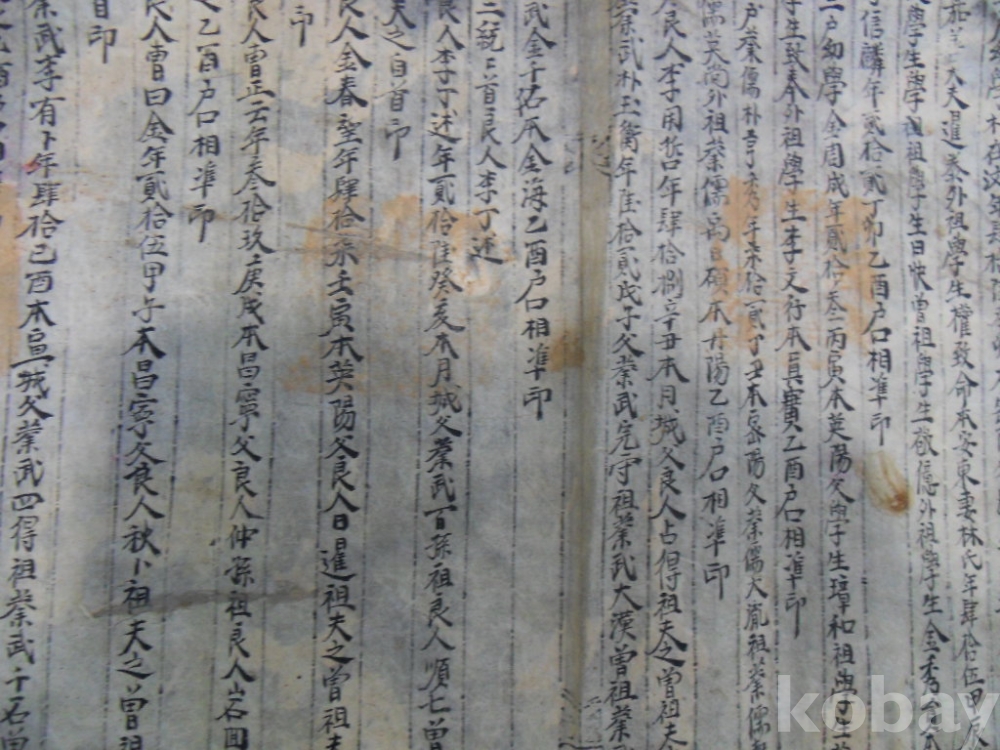 嘉善大夫暹泰外祖學生權致命本安東妻林氏年肆拾伍甲辰
學生學祖學生日恢曾祖學生敬億外祖學生金秀
信麟年貳拾貳丁卯乙酉戶口相準印
戶幼學金周成年貳拾叁丙寅本英陽父學生璋和祖學生
學生致奉外祖學生李文行本眞寶乙酉戶口相準印
戶業儒朴亨秀年柒拾貳丁丑本密陽父業儒大胤祖業儒
儒英向外祖業儒禹日碩本丹陽乙酉戶口相準印
良人李用哲年肆拾捌辛丑本月城父良人占得祖夫之曾祖夫
業武朴玉衡年陸拾貳戊子父業武完守祖業武大漢曾祖業
武金千石本金海乙酉戶口相準印
三統一首良人李丁述
良人李丁述年貳拾陸癸亥本月城父業武百孫祖良人順七曾
夫之自首印
良人金春聖年肆拾柒壬寅本英陽父良人日暹祖夫之曾祖夫
印
良人曺正云年叁拾玖庚戌本昌寧父良人仲孫祖良人岩回
乙酉戶口相準印
良人曺日金年貳拾伍甲午本昌寧父良人秋卜祖夫之曾祖
自印
業武李有卜年肆拾己酉本邑城父業武四得祖業武千石曾
kobay